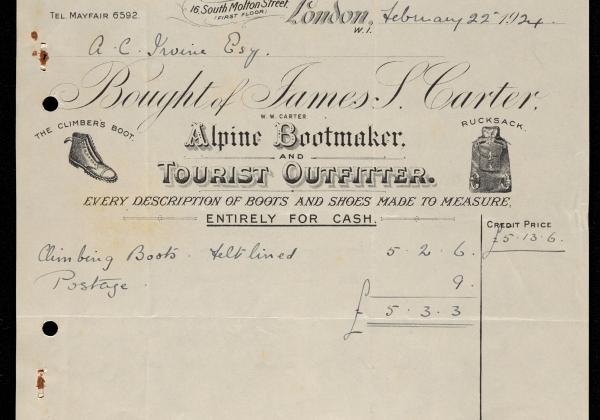 16, South Molton Street,
(FIRST FLOOR)
TEL. MAYFAIR 6592.
London, February 22 1924.
W.1.
A. C. Irvine Esq.
Bought of James S. Carter.
W. W. CARTER
THE CLIMBER'S BOOT.
RUCKSACK.
Alpine Bootmaker.
AND
TOURIST OUTFITTER.
EVERY DESCRIPTION OF BOOTS AND SHOES MADE TO MEASURE,
ENTIRELY FOR CASH.
CREDIT PRICE
£5.13.6.
Climbing Boots. felt lined 5. 2. 6.
Postage. 9.
£ 5. 3. 3